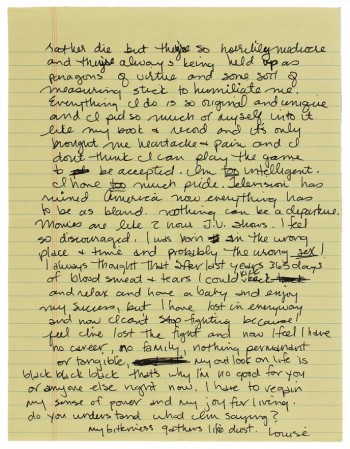 rather die but they're so horribly mediocre
and they're always being held up as
paragons of virtue and some sort of
measuring stick to humiliate me.
Everything I do is so original and unique
and I put so much of myself into it
like my book & record and it's only
brought me heartache & pain and I
don't think I can play the game
to be accepted. I'm too intelligent.
I have too much pride. Television has
ruined America now everything has
to be as bland. nothing can be a departure.
Movies are like 2 hour T.V. shows. I feel
so discouraged. I was born in the wrong
place & time and probably the wrong sex!
I always thought that after last years 365 days
of blood sweat & tears I could
and relax and have a baby and enjoy
my success, but I have lost in everyway
and now I can't stop fighting because I
feel I've lost the fight and now I feel I have
no career, no family, nothing permanent
or tangible, my outlook on life is
black black black that's why I'm no good for you
or anyone else right now. I have to regain
my sense of power and my joy for living.
do you understand what I'm saying?
my bitterness gathers like dust. Louise